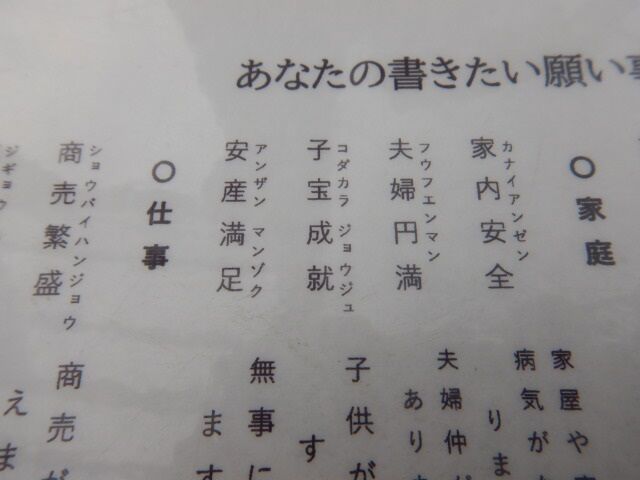 あなたの書きたい願い事
○家庭
家内安全
カナイアンゼン
家屋や
病気が
りま
夫婦円満
フウフエンマン
夫婦仲が
ありま
子宝成就
コダカラ ジョウジュ
子供が
す
安産満足
アンザン マンゾク
無事に
ます
○仕事
商売繁盛
ショウバイハンジョウ
商売が
えま
ジギョウ